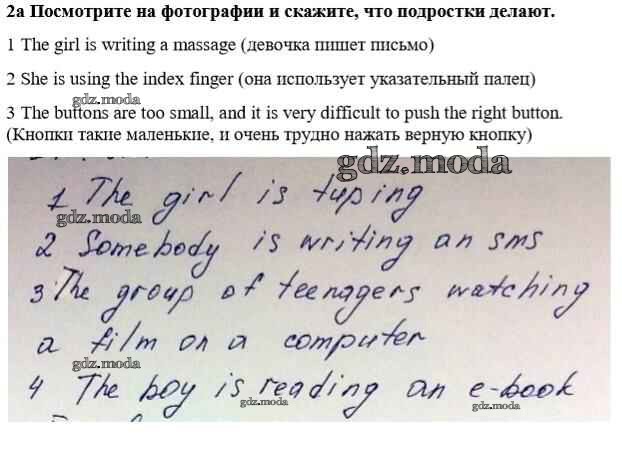 2а Посмотрите на фотографии и скажите, что подростки делают.
1 The girl is writing a massage (девочка пишет письмо)
2 She is using the index finger (она использует указательный палец)
gdz.moda
3 The buttons are too small, and it is very difficult to push the right button.
(Кнопки такие маленькие, и очень трудно нажать верную кнопку)
gdz.moda
1 The girl is tuping
gdz.moda
2 Somebody is writing an sms
3 The group of teenagers watching
a film on a computer
gdz.moda
4 The boy is reading an e-book
gdz.moda
gdz.moda